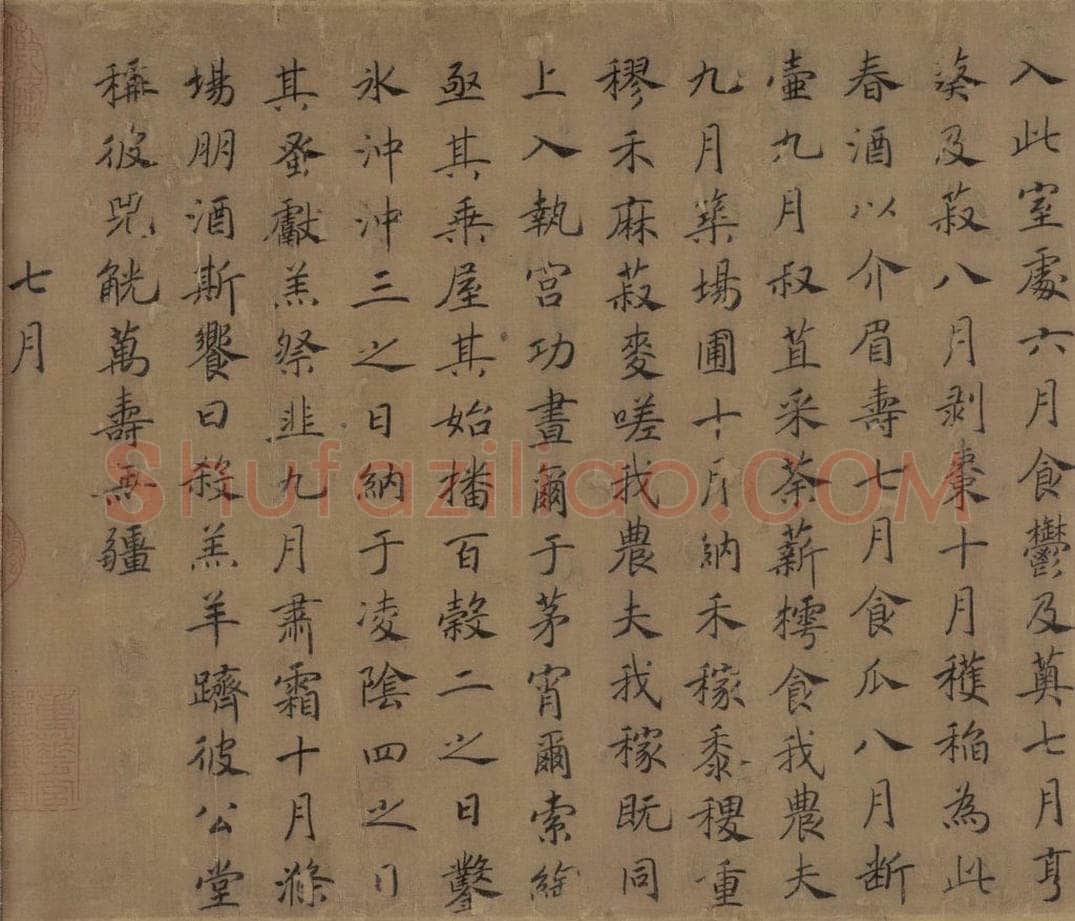 入此室處六月食鬱及薁七月亨
葵及菽八月剥棗十月穫稻為此
春酒以介眉壽七月食瓜八月断
壷九月叔苴采荼薪樗食我農夫
九月築場圃十月納禾稼黍稷重
穋禾麻菽麥嗟我農夫我稼既同
上入執宫功晝爾于茅宵爾索綯
亟其乘屋其始播百榖二之日鑿
氷沖沖三之日納于凌陰四之日
其蚤獻羔祭韭九月肅霜十月滌
場朋酒斯饗曰殺羔羊躋彼公堂
稱彼兕觥萬壽無疆
七月
Shufaziliao.COM